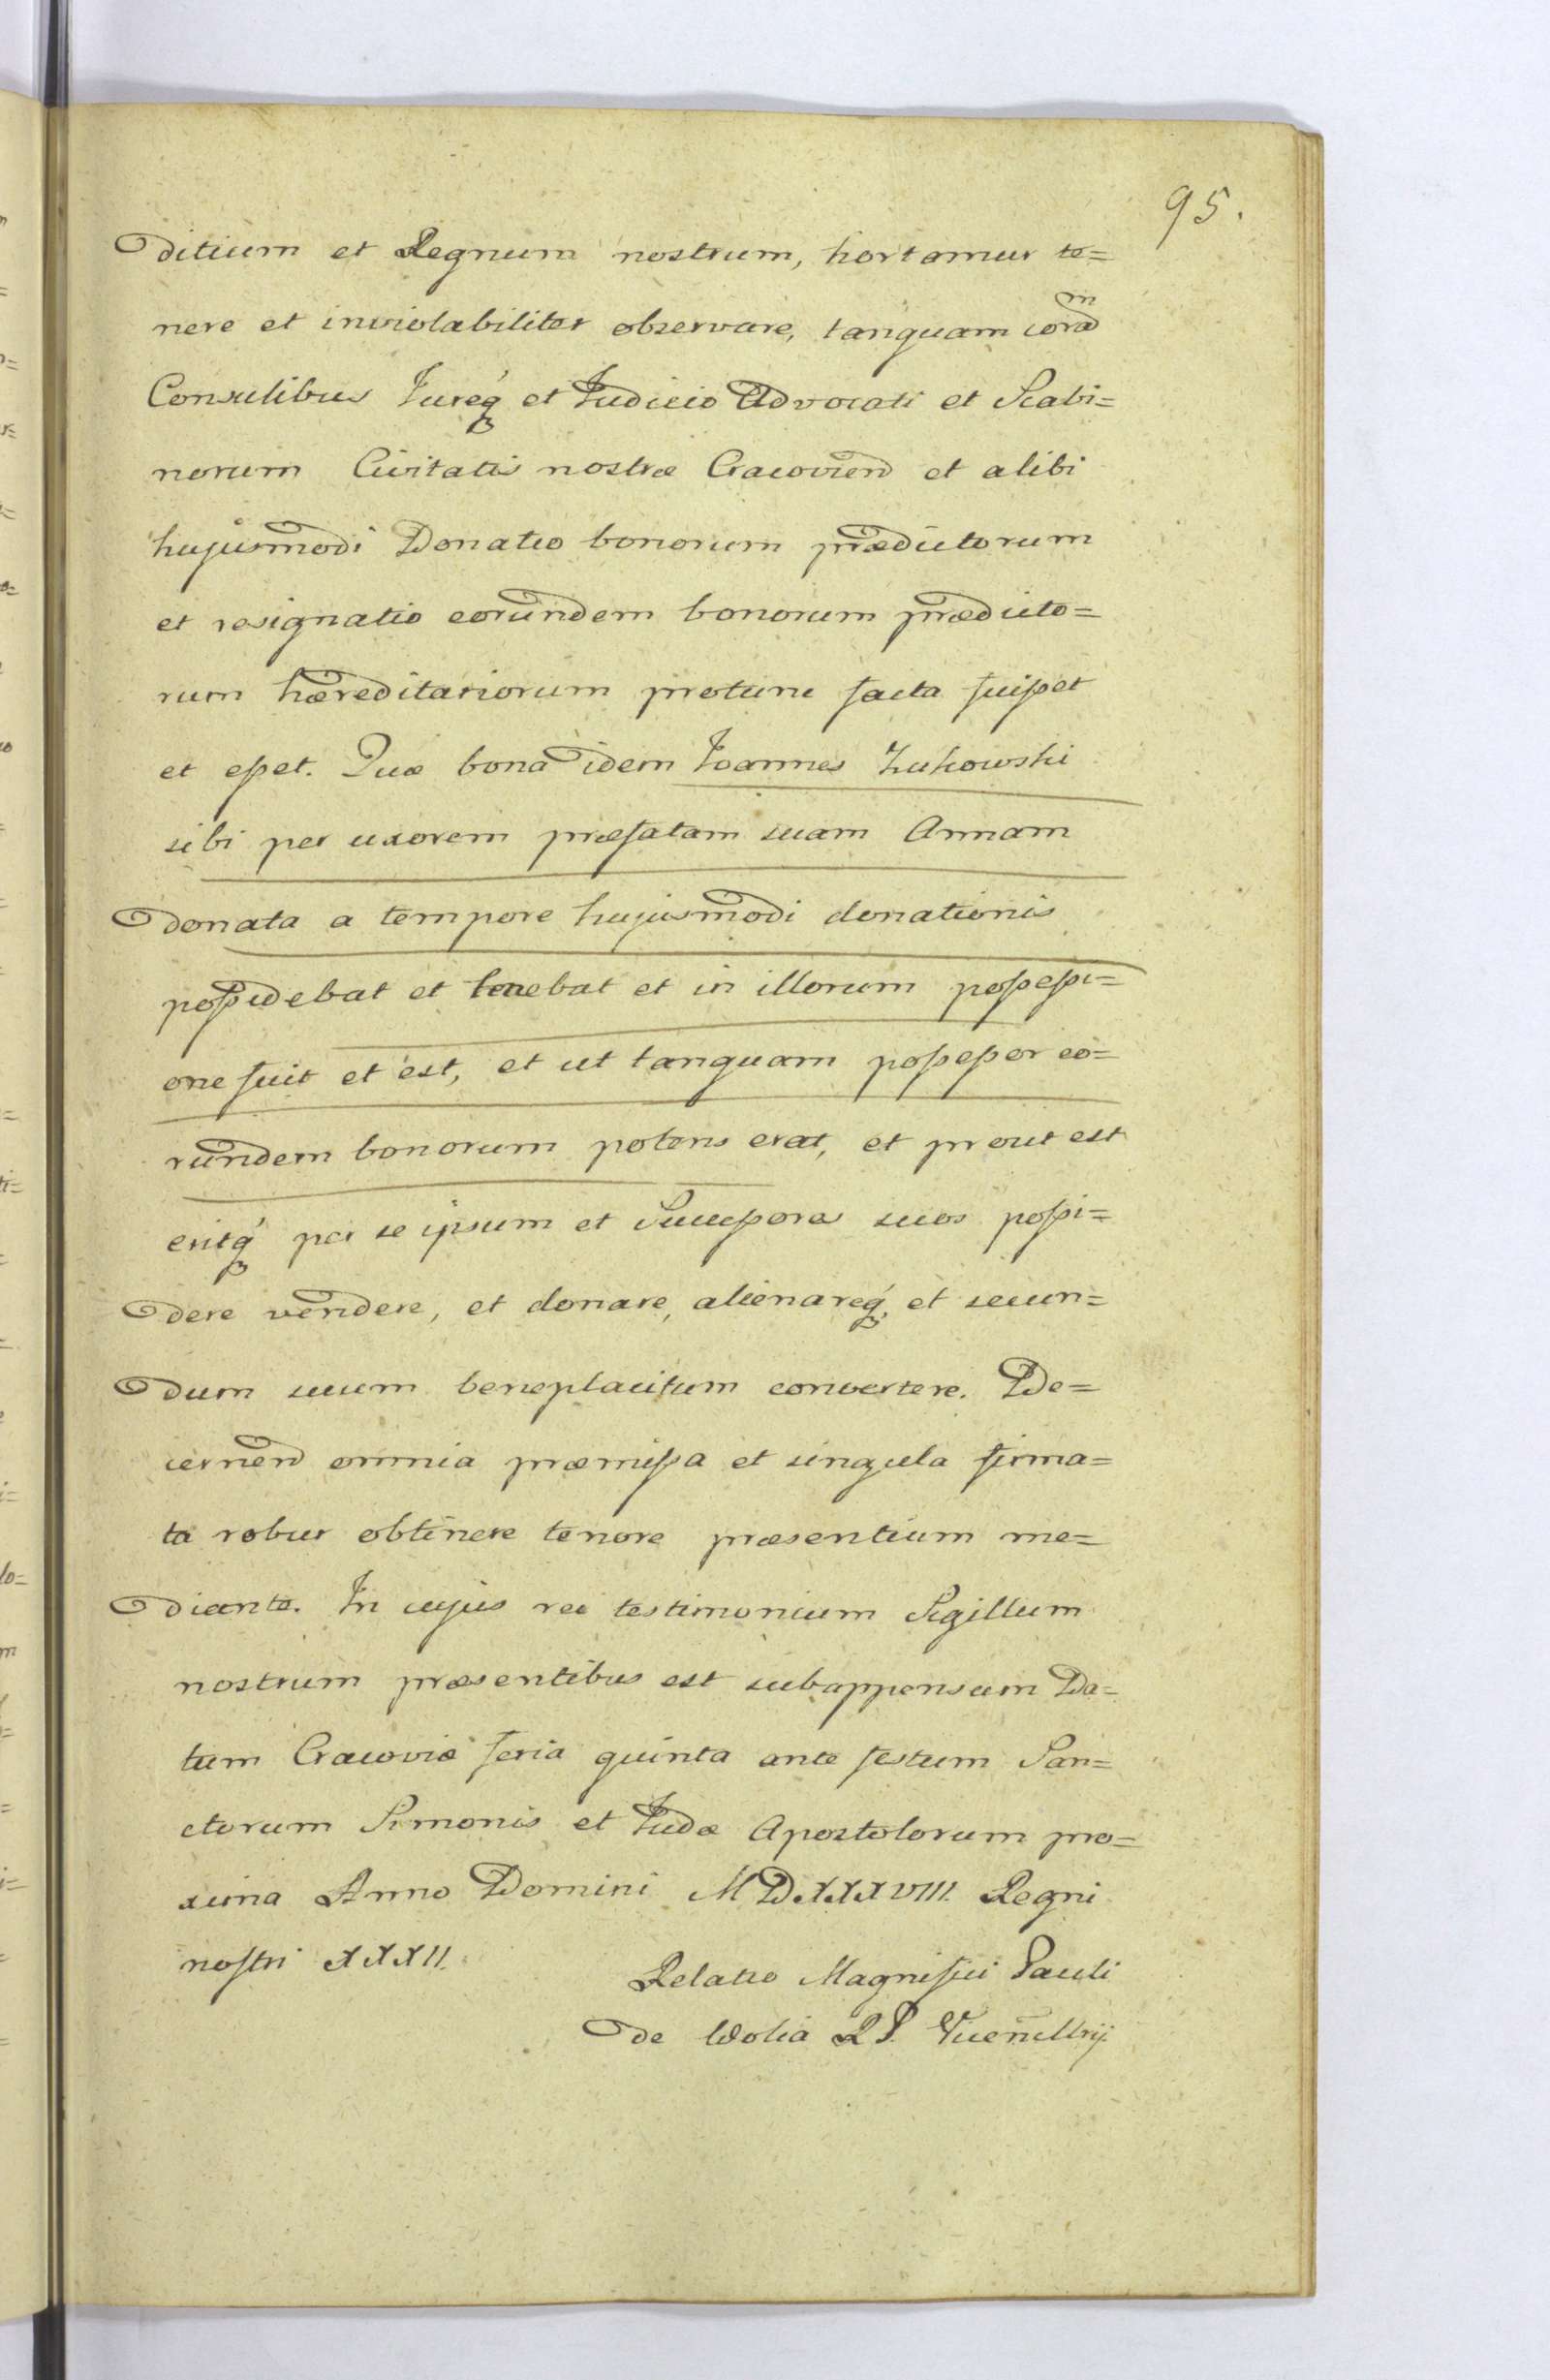 95.
ditium et Regnum nostrum, hortamur te=
nere et inviolabiliter observare, tanquam coram
Consulibus Jureq́ et Judicio Advocati et Scabi=
norum Civitatis nostræ Cracovien̄ et alibi
hujusmodi Donatio bonorum prædictorum
et resignatio eorundem bonorum prædicto=
rum hæreditariorum protunc facta fuisset
et esset. Quæ bona idem Joannes Zukowski
sibi per uxorem præfatam suam Annam
donata a tempore hujusmodi donationis
possidebat et tenebat et in illorum possessi=
one fuit et est, et ut tanquam possessor eo=
rundem bonorum potens erat, et prout est
eritq́ per se ipsum et Successores suos possi=
dere vendere, et donare, alienareq́, et secun=
dum suum beneplacitum convertere. De=
cernen̄ omnia præmissa et singula firma=
ta robur obtinere tenore præsentium me=
diante. In cujus rei testimonium Sigillum
nostrum præsentibus est subappensum Da=
tum Cracoviæ feria quinta ante festum San=
ctorum Simonis et Judæ Apostolorum pro=
xima Anno Domini MDXXXVIII. Regni
nostri XXXII.
Relatio Magnifici Pauli
de Wolia R P.